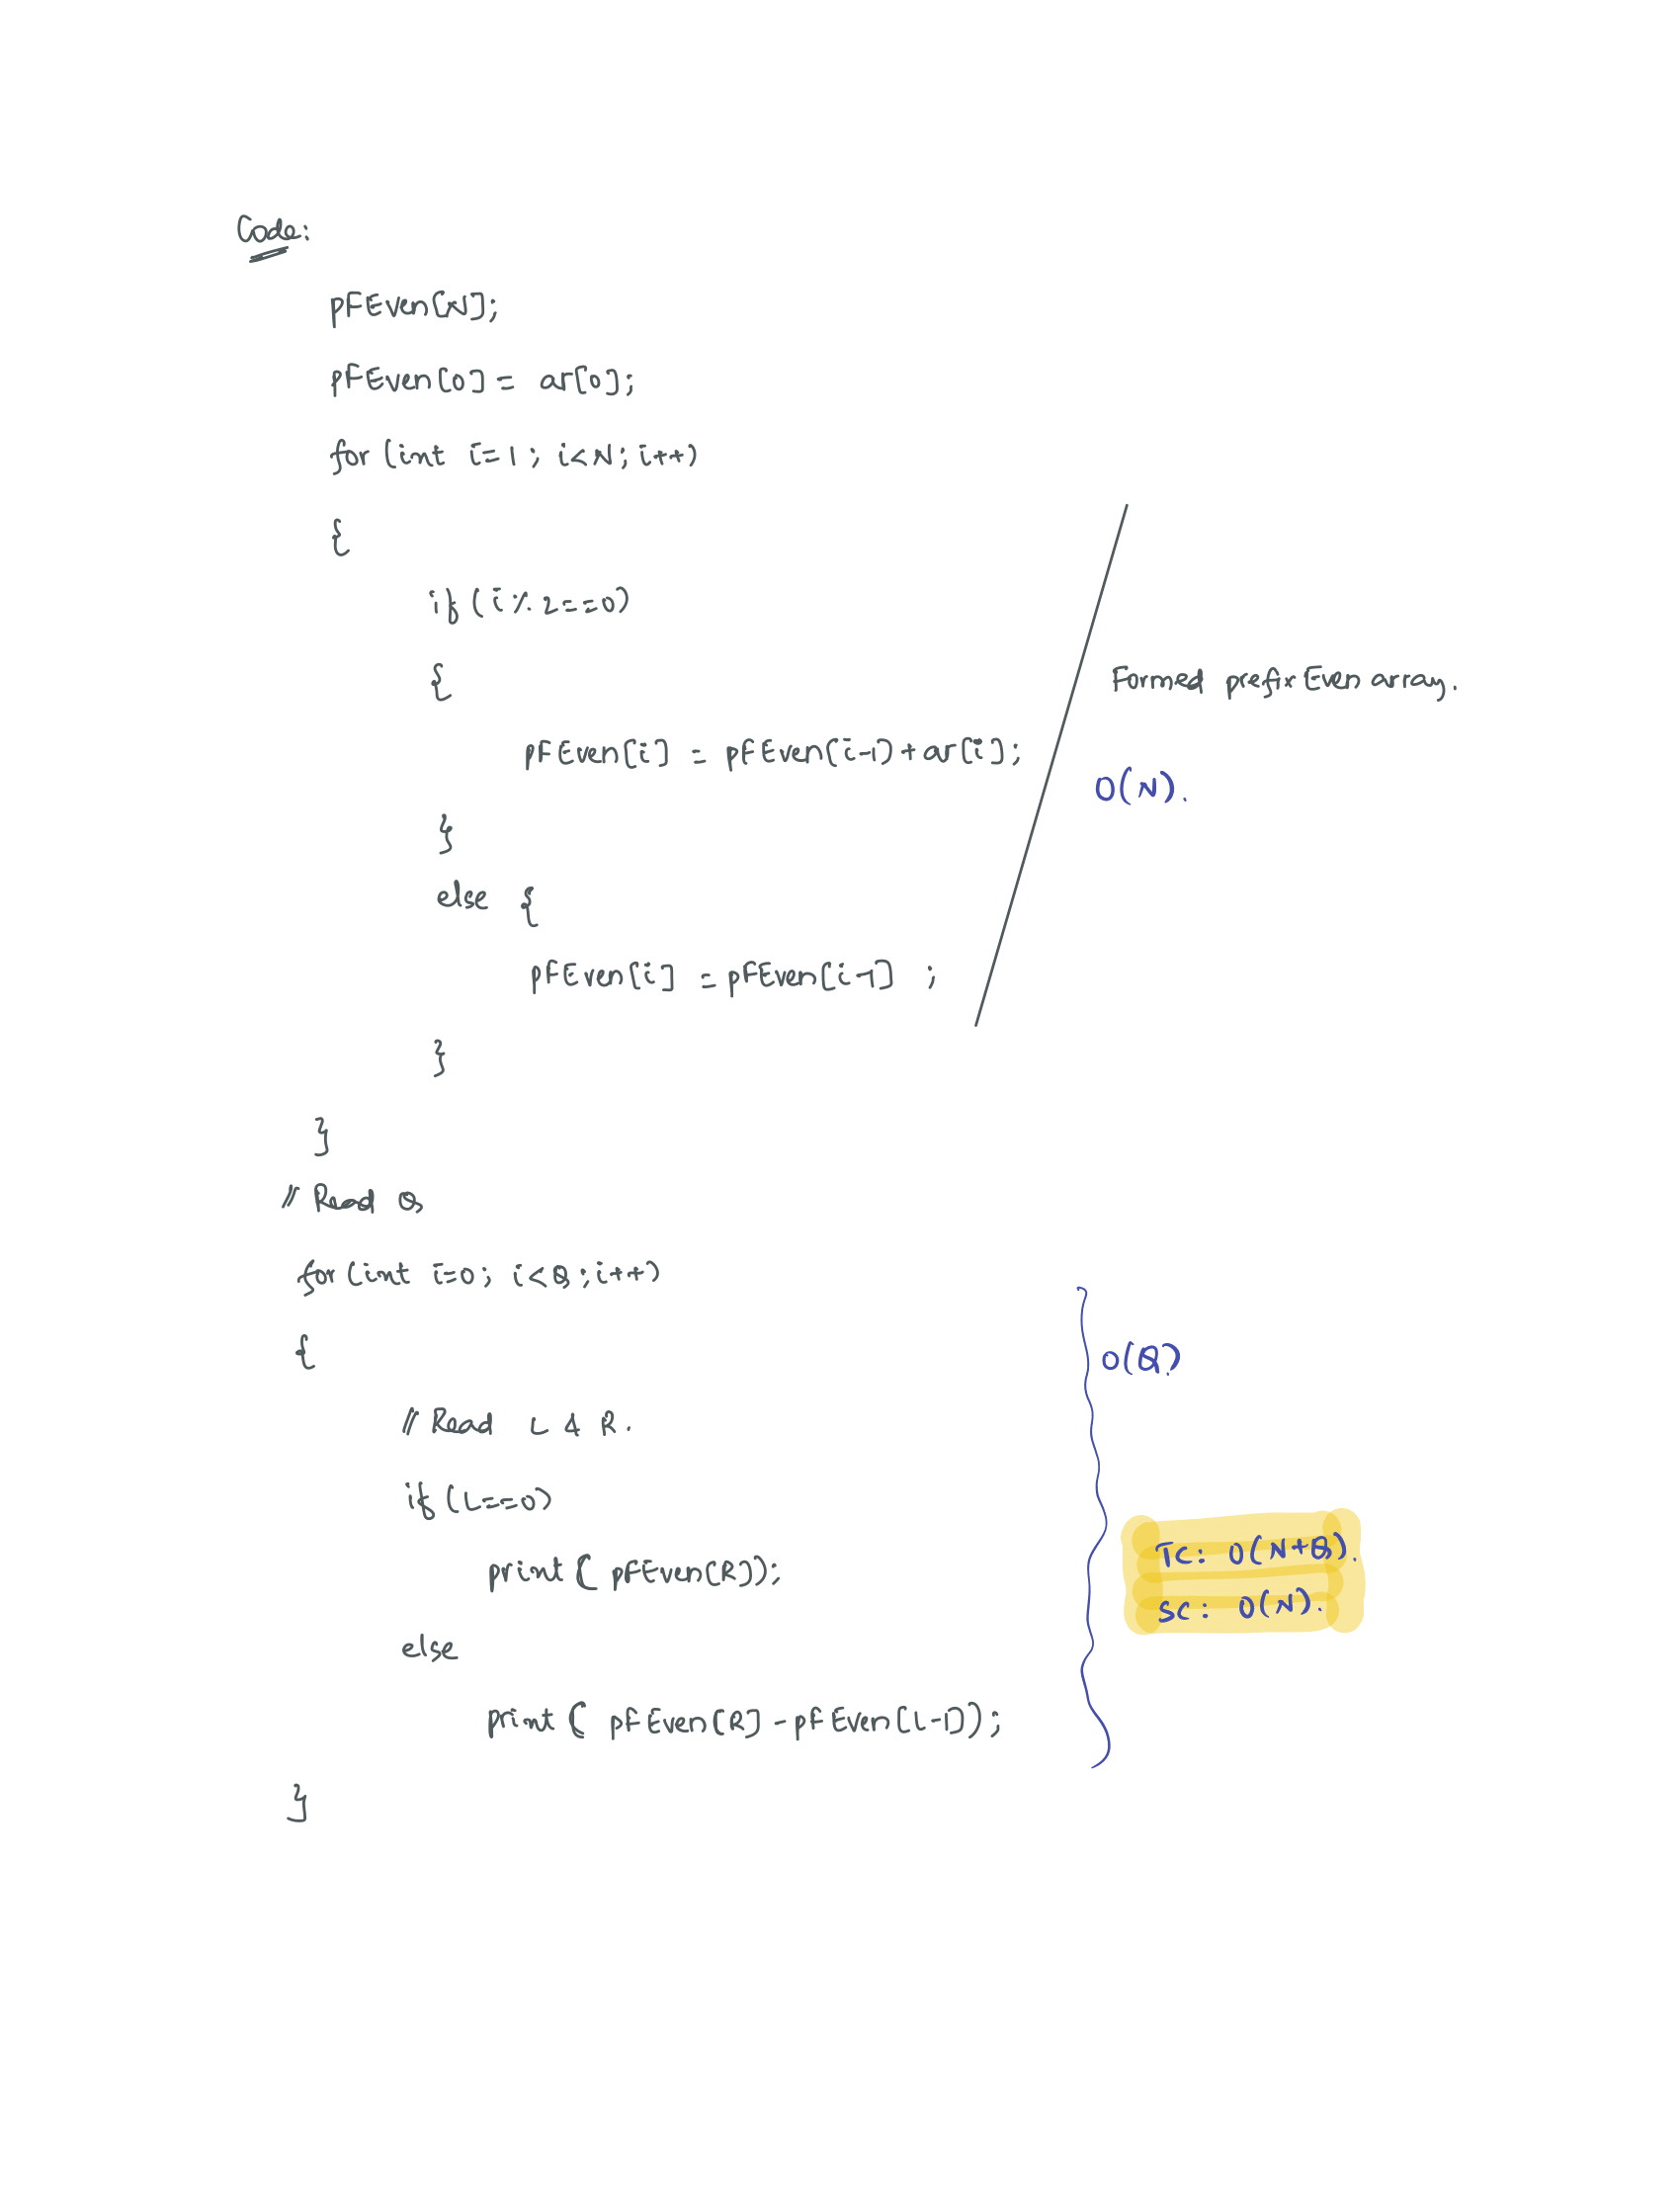 Code:
pFEven[N];
pFEven[0] = ar[0];
for (int i=1; i<N; i++)
{
if (i%2==0)
{
pFEven[i] = pFEven[i-1]+ar[i];
}
else {
pFEven[i] = pFEven[i-1] ;
}
}
Formed prefixEven array.
O(N).
// Read Q
for (int i=0; i<Q; i++)
{
// Read L & R.
if (L==0)
print( pFEven[R]);
else
print( pFEven[R] - pFEven[L-1]);
}
O(Q).
TC: O(N+Q).
SC: O(N).